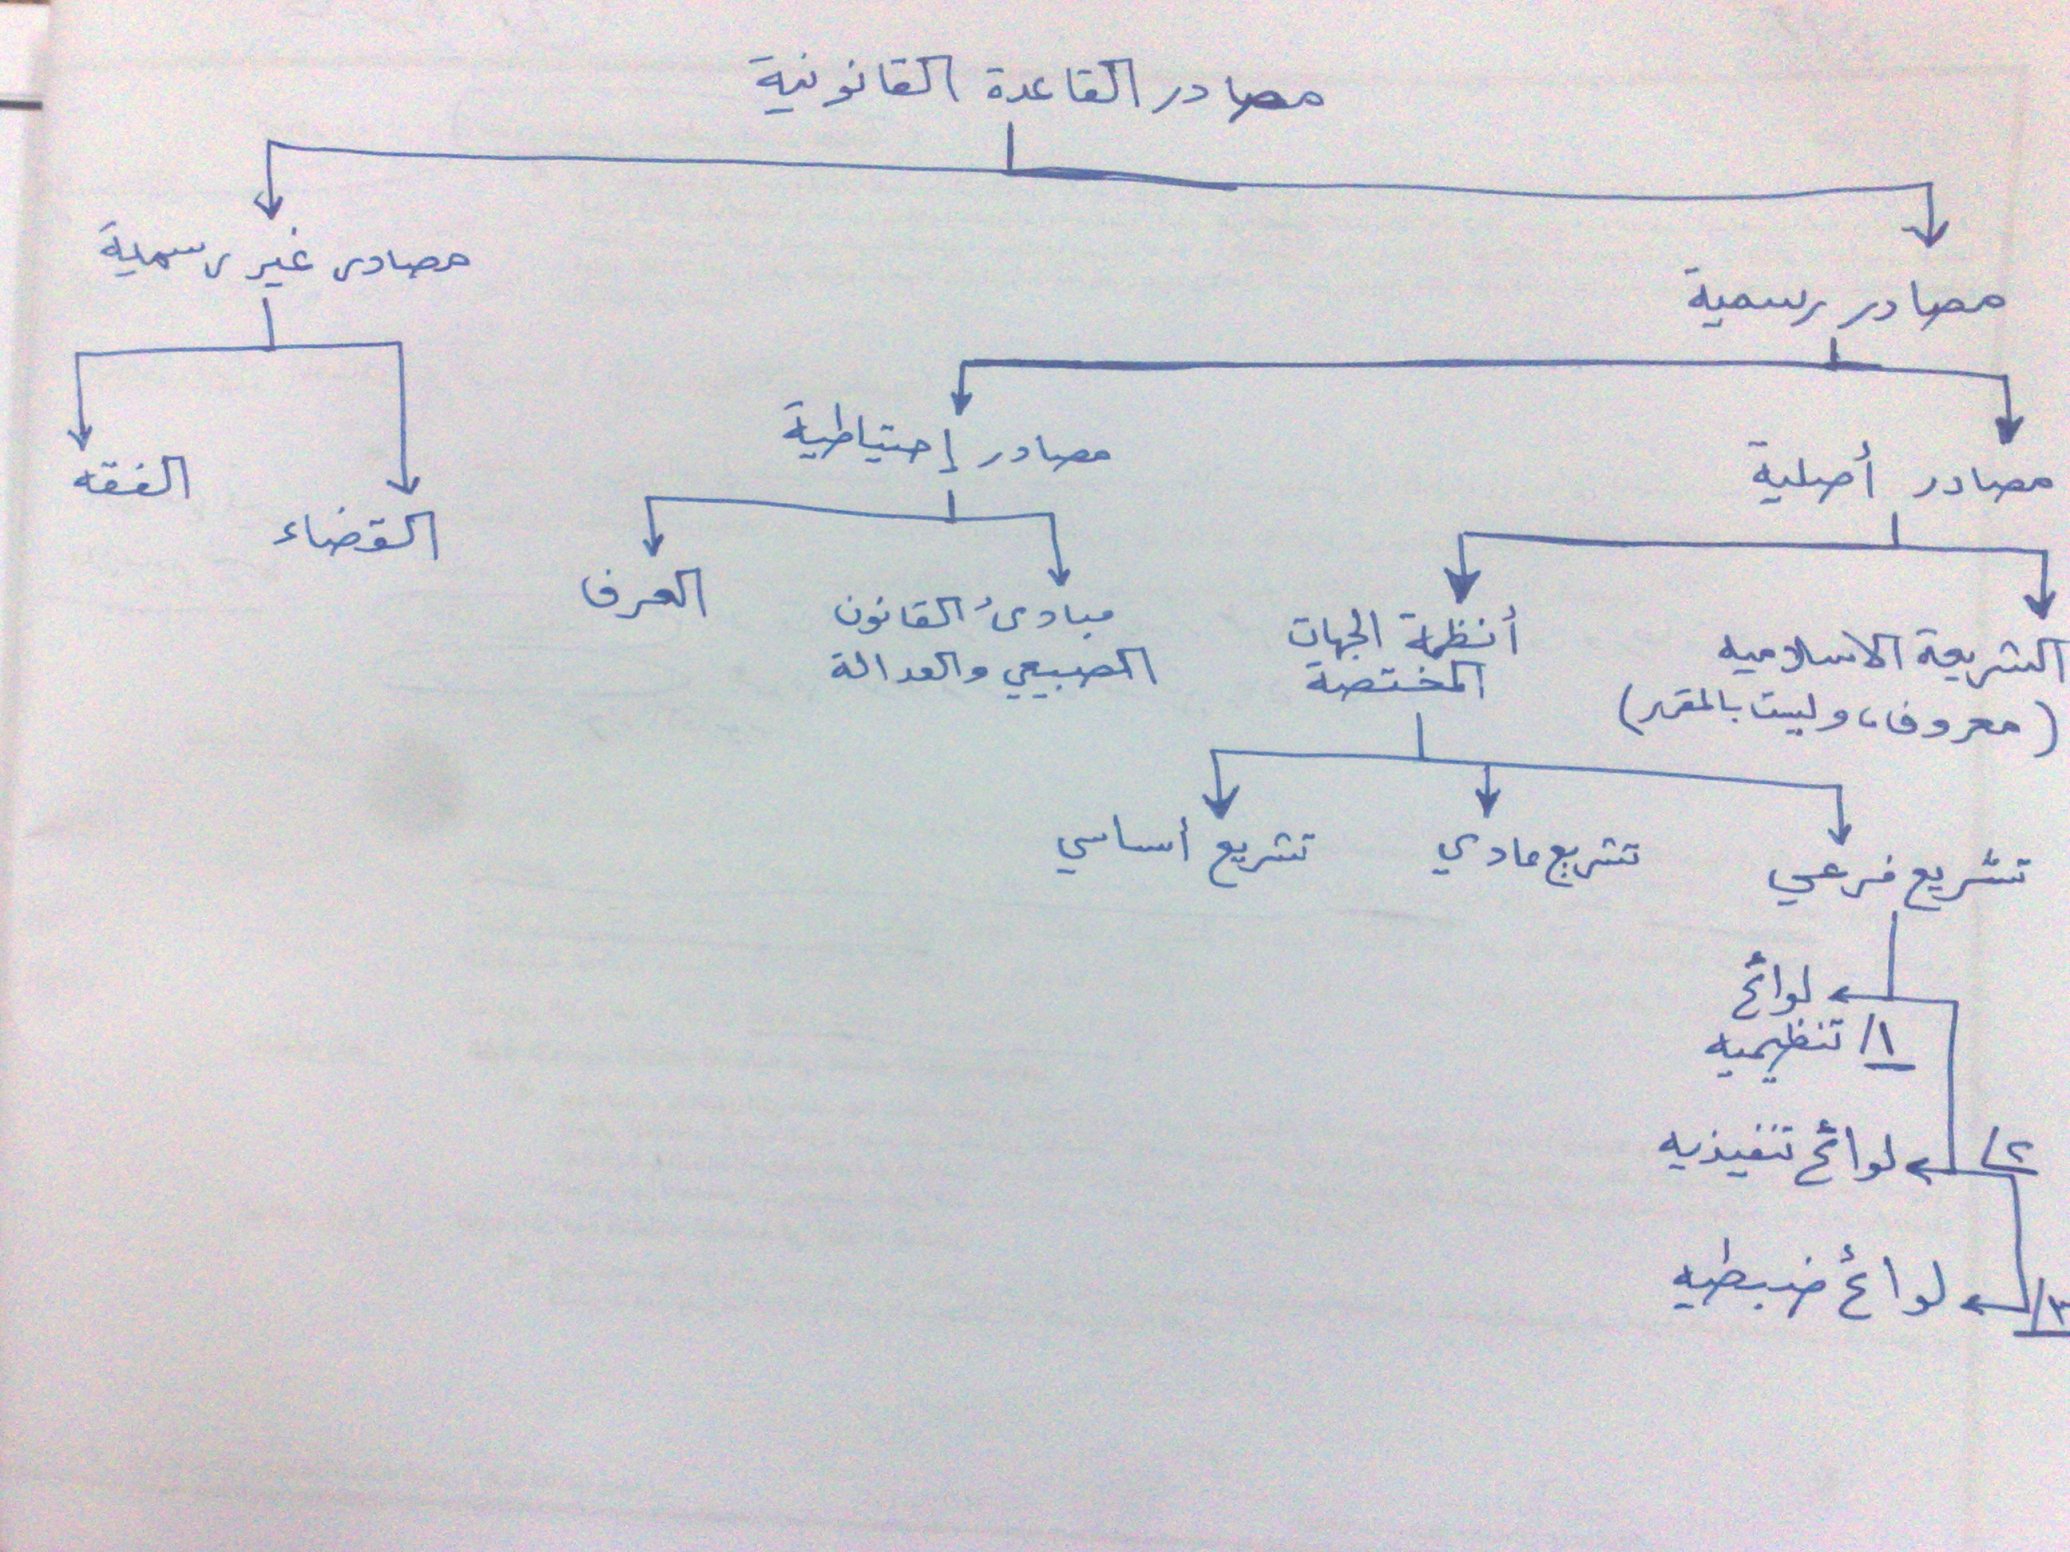 مصادر القاعدة القانونية
مصادر رسمية
مصادر غير رسمية
مصادر أصلية
مصادر إحتياطية
القضاء
الفقه
الشريعة الاسلاميه
(معروف، وليست بالمقرر)
أنظمة الجهات
المختصة
مبادئ القانون
الطبيعي والعدالة
العرف
تشريع فرعي
تشريع عادي
تشريع أساسي
لوائح
١/ تنظيميه
٢/ لوائح تنفيذيه
٣/ لوائح ضبطيه